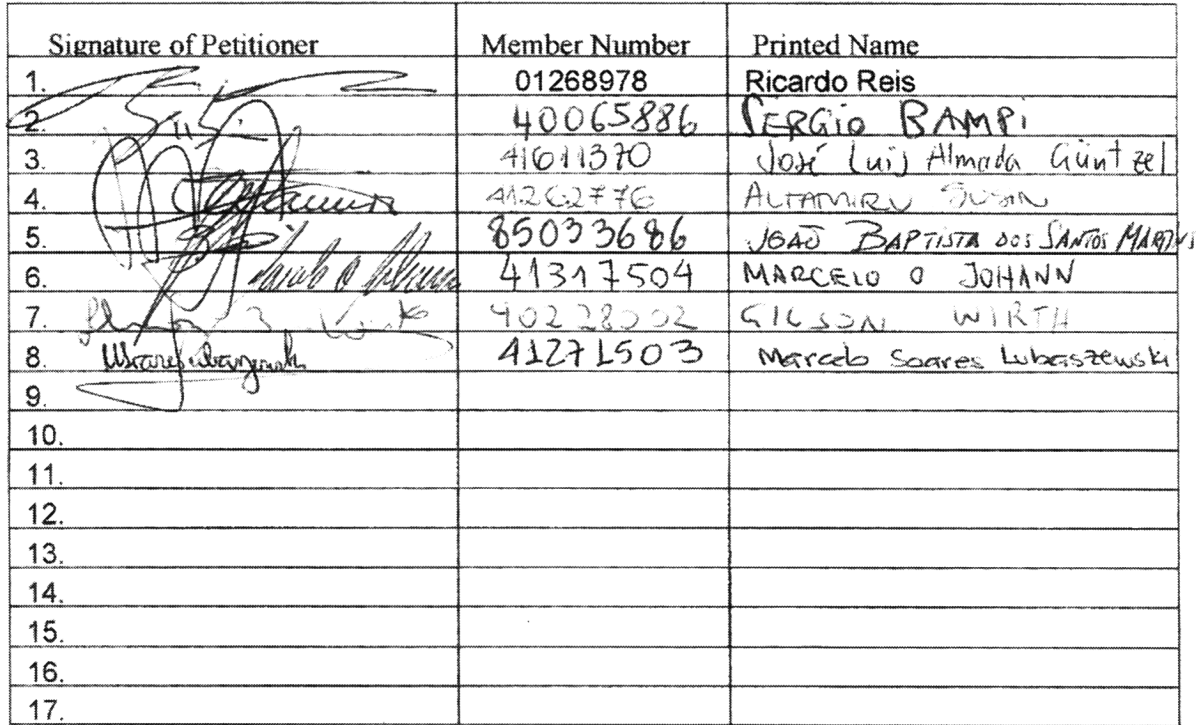 Signature of Petitioner Member Number Printed Name
1. 01268978 Ricardo Reis
2. 40065886 SERGIO BAMPI
3. 41611370 José Luís Almada Güntzel
4. 41262776 ALTAMIRO SUSIN
5. 85033686 JOAO BAPTISTA DOS SANTOS MARTINS
6. 41317504 MARCELO O JOHANN
7. 40228002 GILSON WIRTH
8. 41271503 Marcelo Soares Lubaszewski
9.
10.
11.
12.
13.
14.
15.
16.
17.